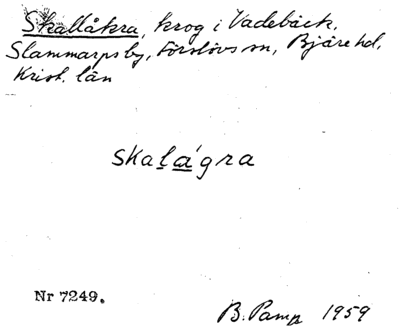 Skallåkra, krog i Vadebäck,
Slammarps by, Förslövs sn, Bjäre hd,
Krist. län
skalágra
Nr 7249.
B. Pamp 1959